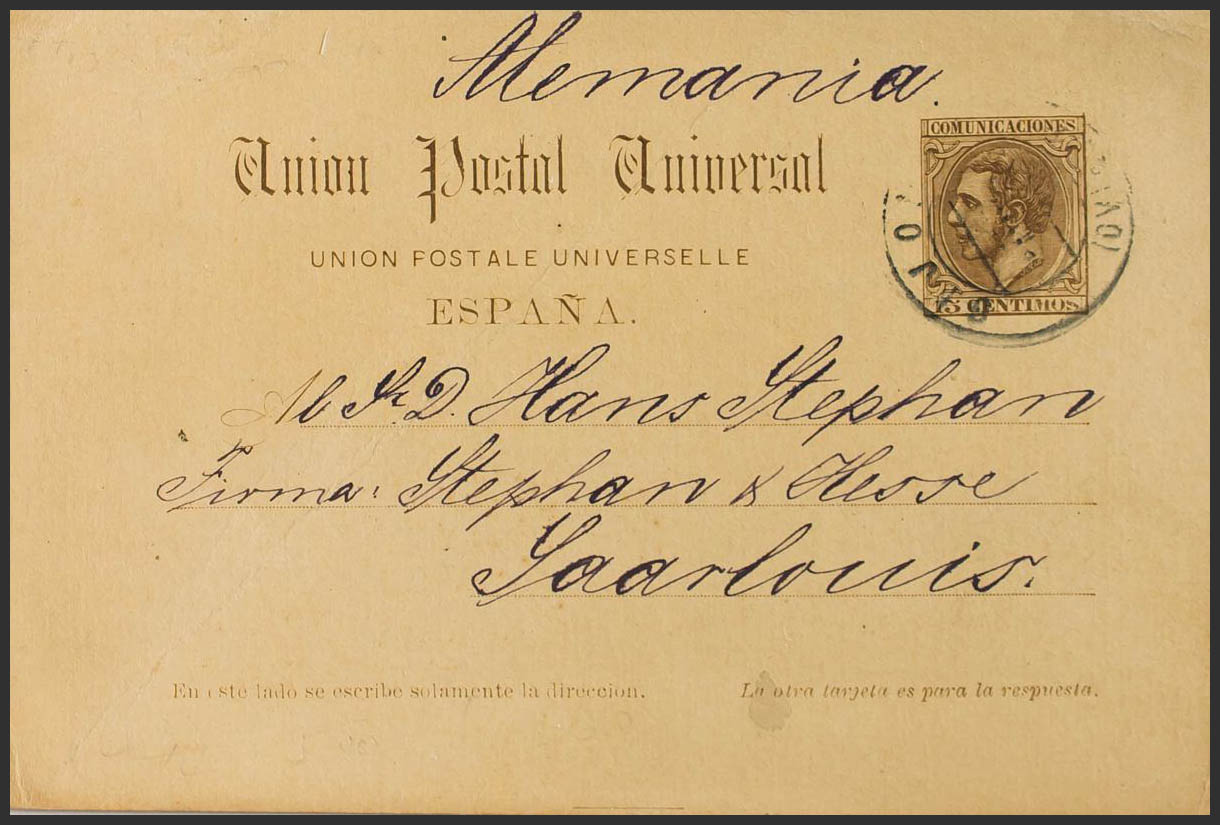 Alemania.
Union Postal Universal
COMUNICACIONES
UNION POSTALE UNIVERSELLE
ESPAÑA.
15 CENTIMOS
Al Sr. D. Hans Stephan
Firma: Stephan & Hesse
Saarlouis.
En este lado se escribe solamente la direccion.
La otra tarjeta es para la respuesta.